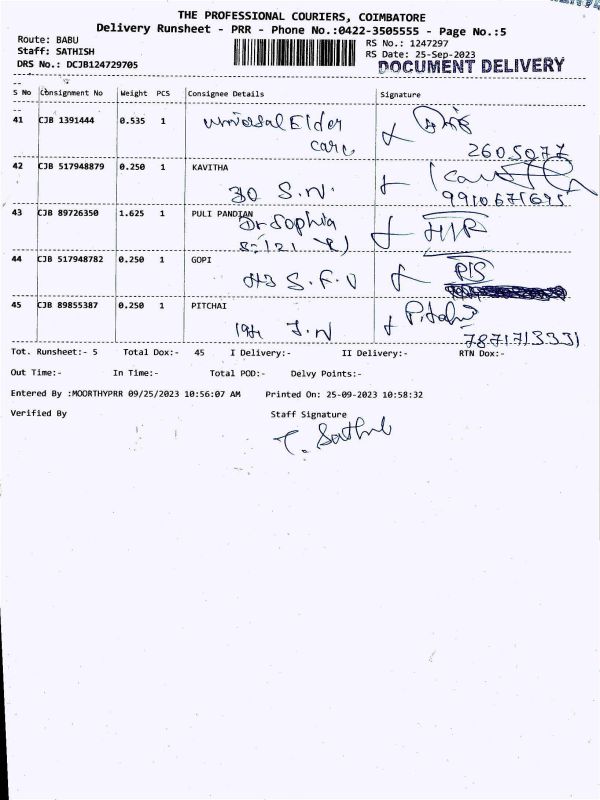 THE PROFESSIONAL COURIERS, COIMBATORE
Delivery Runsheet - PRR - Phone No.:0422-3505555 - Page No.:5
Route: BABU
RS No.: 1247297
Staff: SATHISH
RS Date: 25-Sep-2023
DRS No.: DCJB124729705
DOCUMENT DELIVERY
S No Consignment No Weight PCS Consignee Details Signature
41 CJB 1391444 0.535 1 Universal Elder
care
2605077
42 CJB 517948879 0.250 1 KAVITHA
30 S.N.
9910671695
43 CJB 89726350 1.625 1 PULI PANDIAN
Dr Sophia
44 CJB 517948782 0.250 1 GOPI
S.F.U
45 CJB 89855387 0.250 1 PITCHAI
J.N
7871713331
Tot. Runsheet:- 5 Total Dox:- 45 I Delivery:- II Delivery:- RTN Dox:-
Out Time:- In Time:- Total POD:- Delvy Points:-
Entered By :MOORTHYPRR 09/25/2023 10:56:07 AM Printed On: 25-09-2023 10:58:32
Verified By Staff Signature
T. Sathish